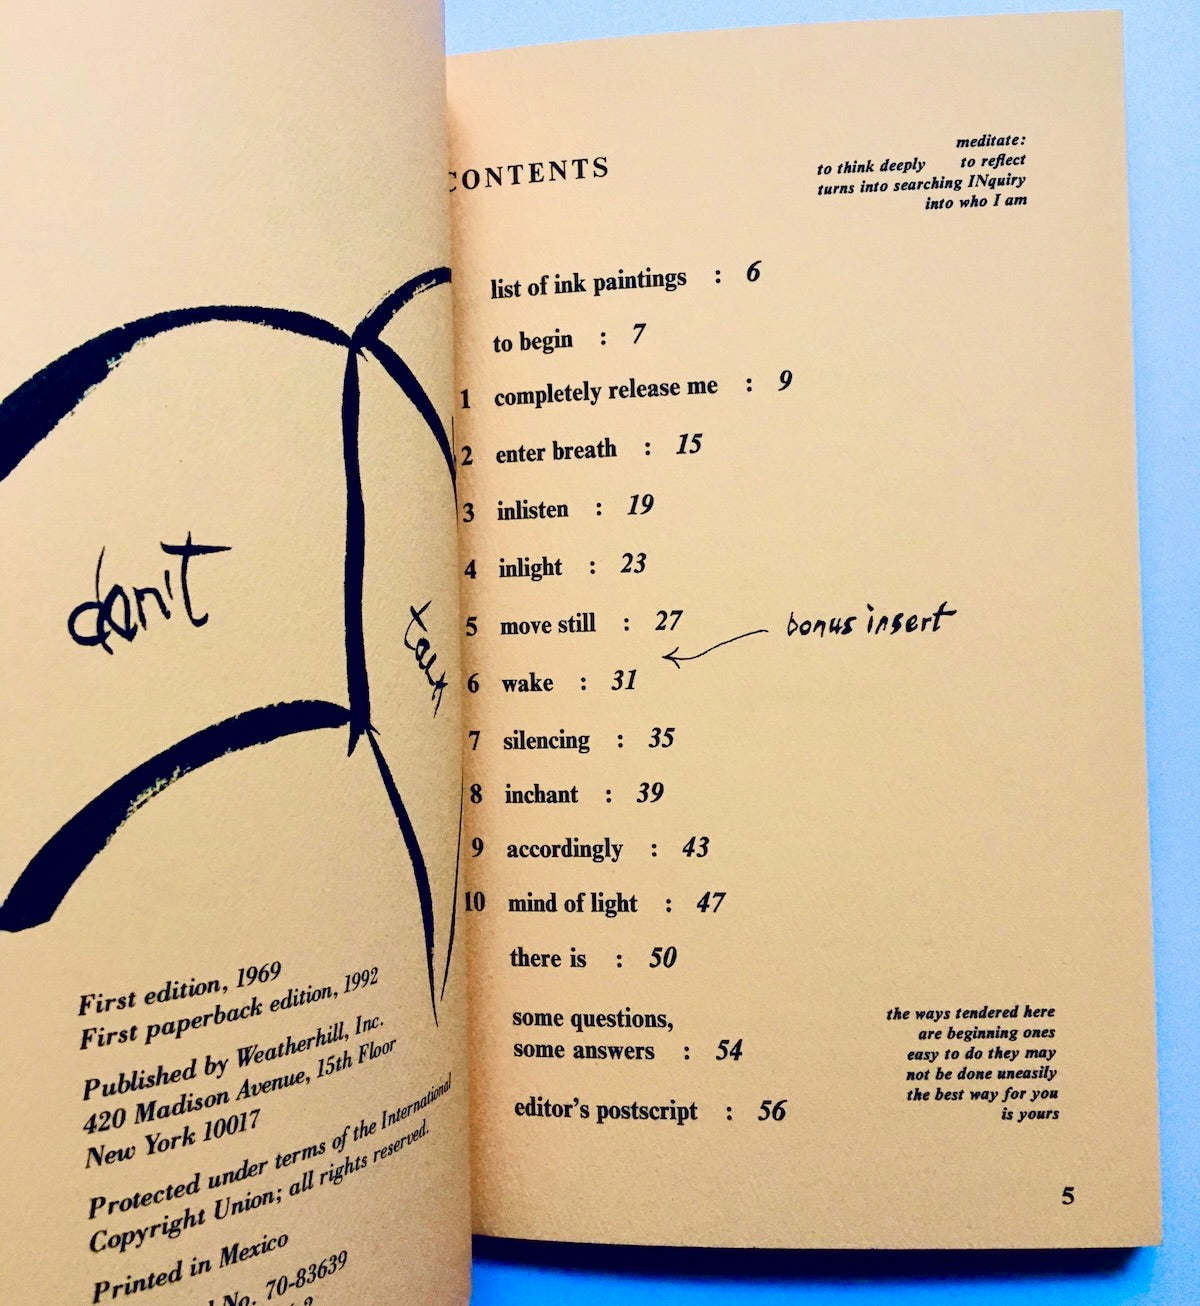 don't
First edition, 1969
First paperback edition, 1992
Published by Weatherhill, Inc.
420 Madison Avenue, 15th Floor
New York 10017
Protected under terms of the International
Copyright Union; all rights reserved.
Printed in Mexico
No. 70-83639
CONTENTS
meditate:
to think deeply to reflect
turns into searching INquiry
into who I am
list of ink paintings : 6
to begin : 7
1 completely release me : 9
2 enter breath : 15
3 inlisten : 19
4 inlight : 23
5 move still : 27
bonus insert
6 wake : 31
7 silencing : 35
8 inchant : 39
9 accordingly : 43
10 mind of light : 47
there is : 50
some questions,
some answers : 54
editor's postscript : 56
the ways tendered here
are beginning ones
easy to do they may
not be done uneasily
the best way for you
is yours
5